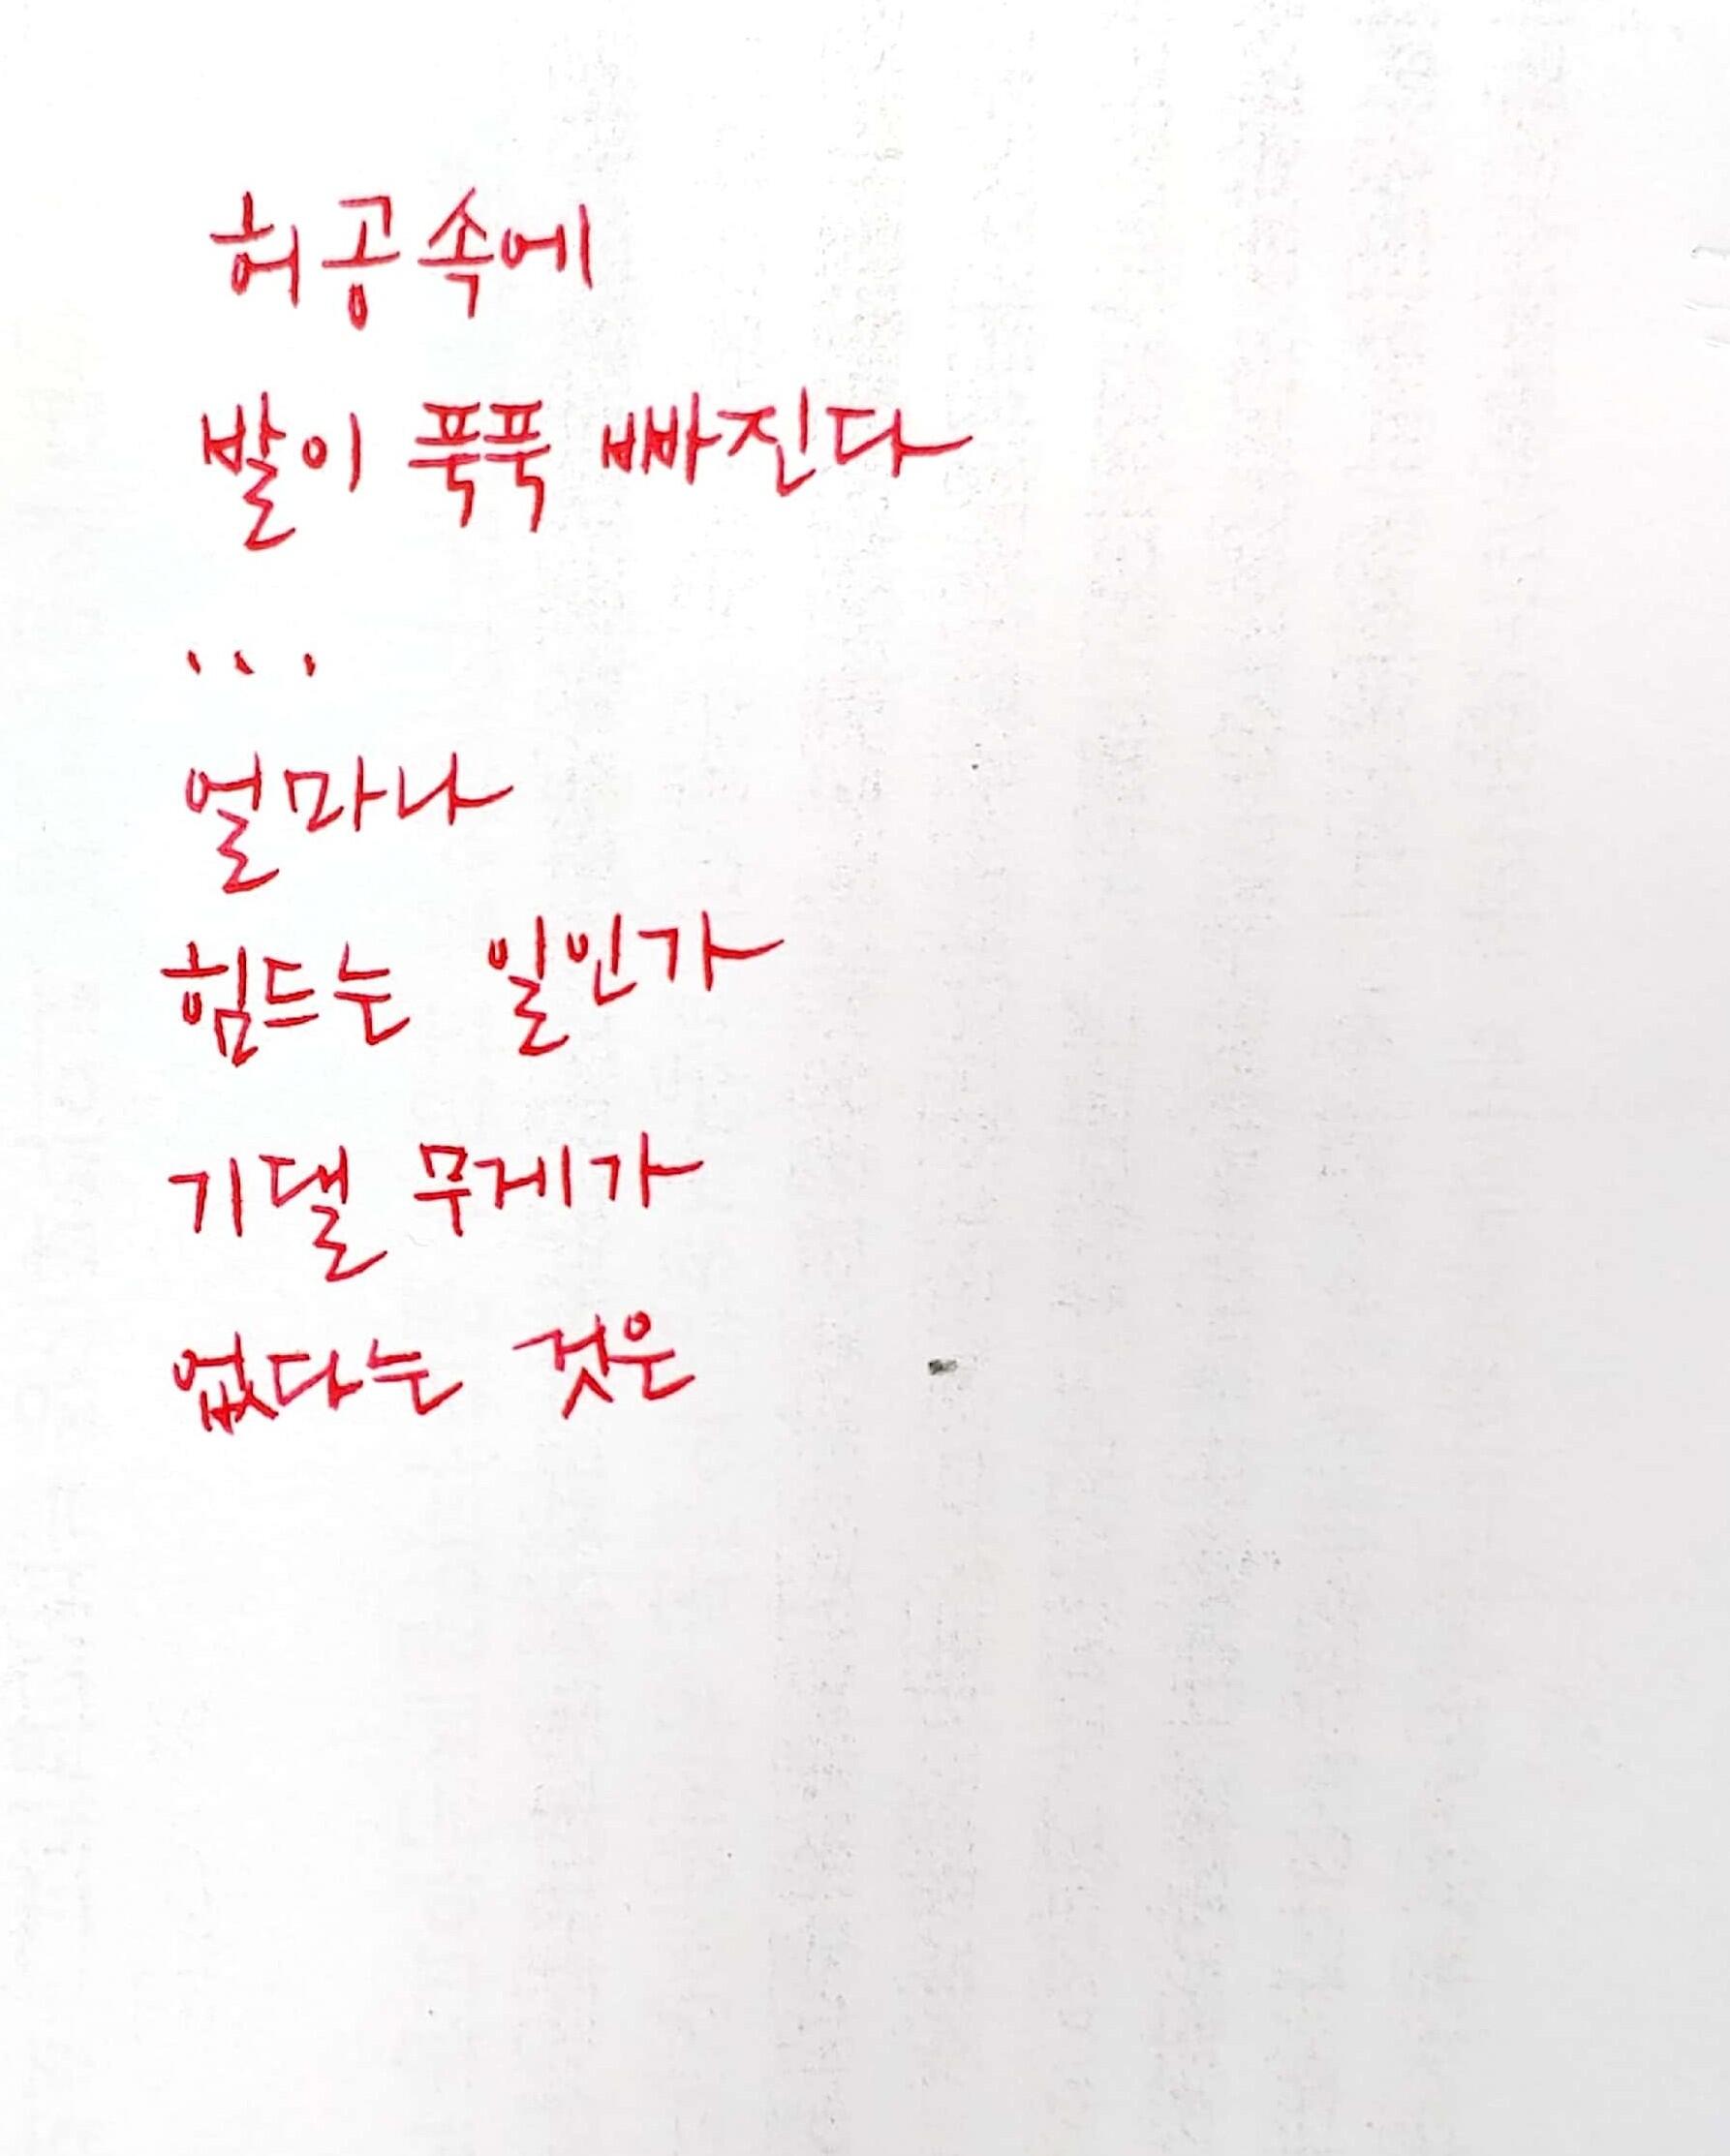 허공속에
발이 푹푹 빠진다
...
얼마나
힘드는 일인가
기댈 무게가
없다는 것은